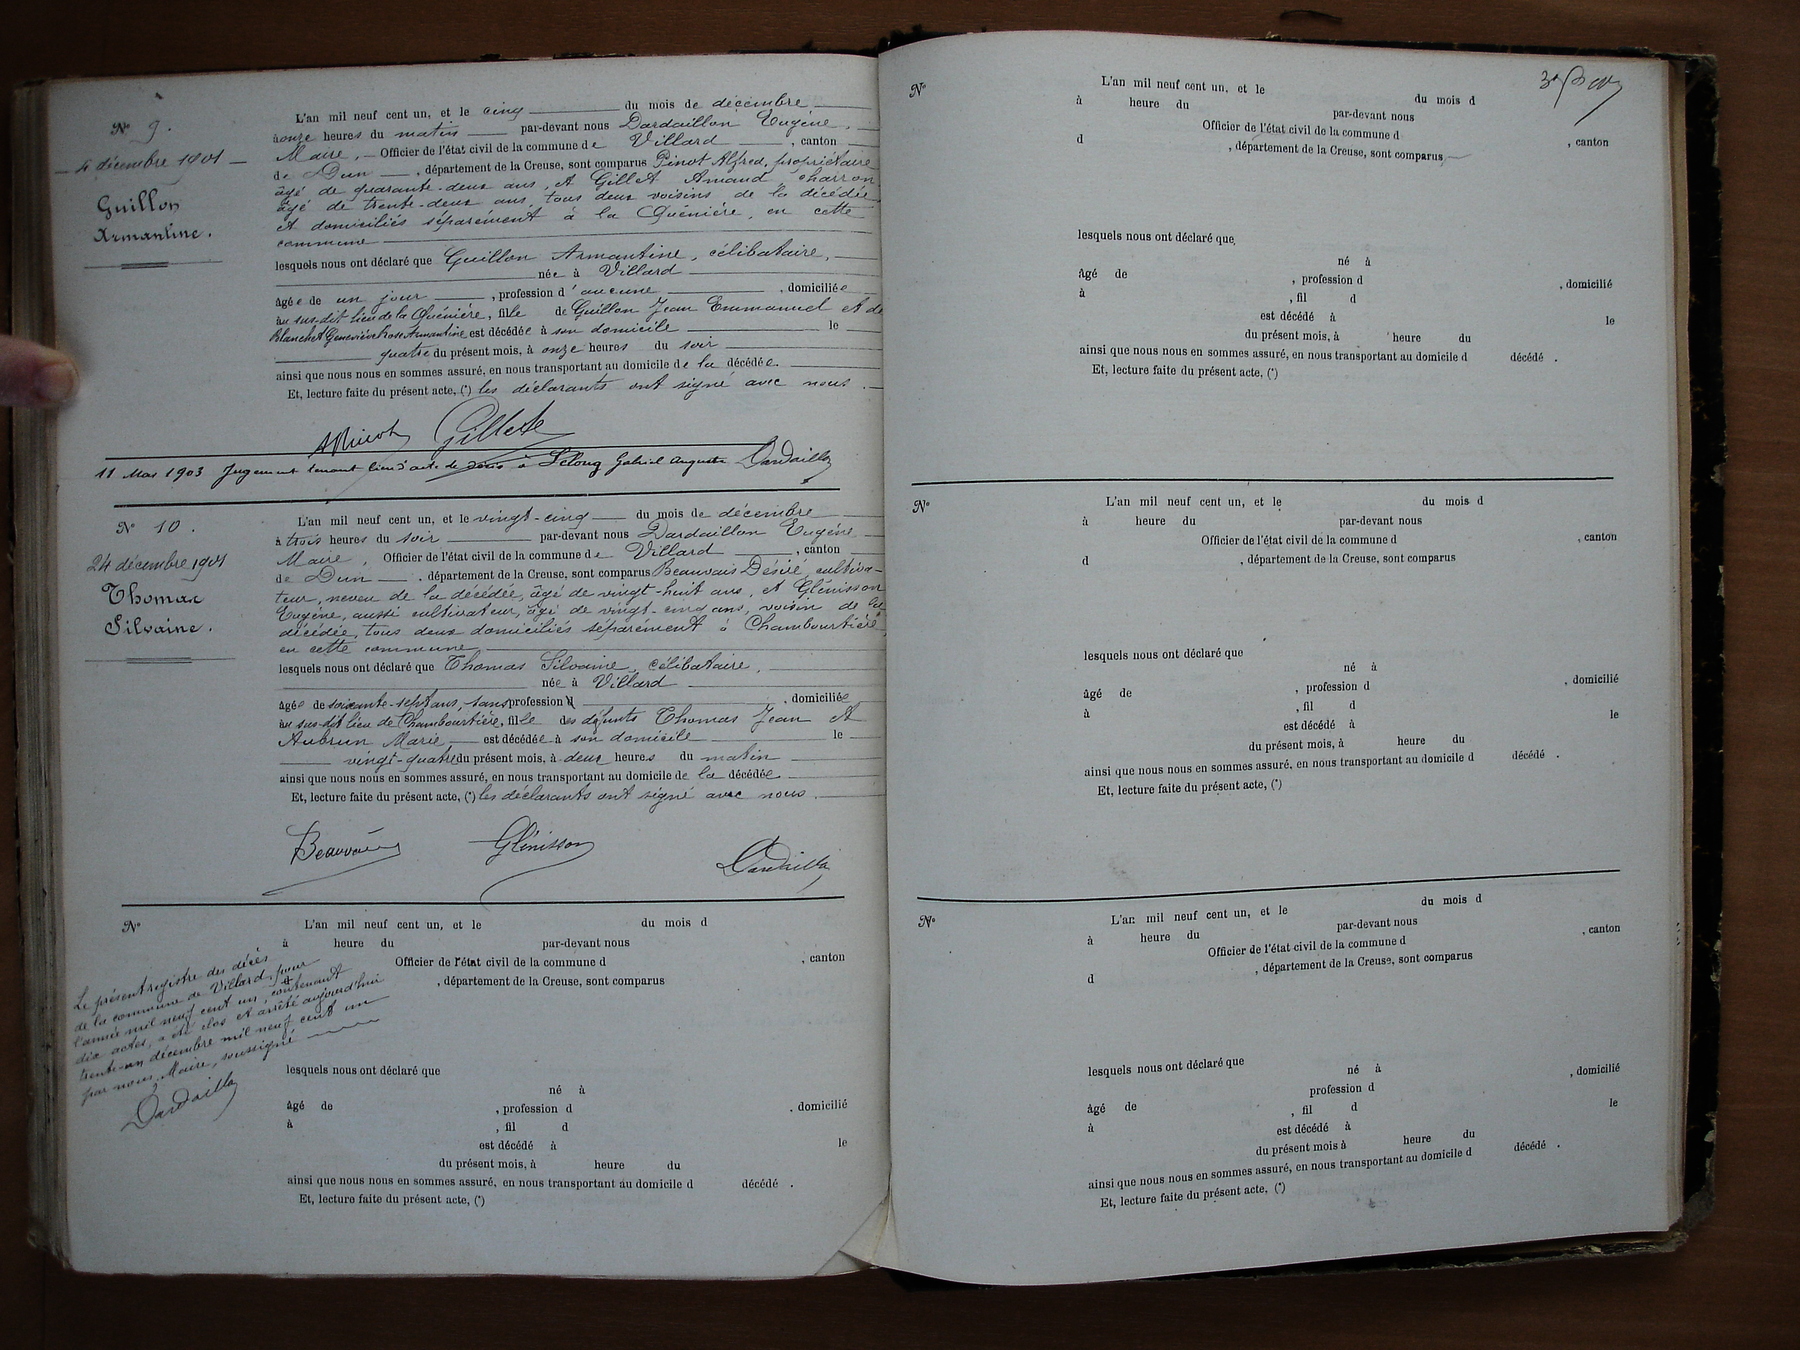 N° 9.
4 décembre 1901
Guillon
Armantine.
L'an mil neuf cent un, et le cinq du mois de décembre
à onze heures du matin par-devant nous Dardaillon Eugène,
Maire, Officier de l'état civil de la commune de Villard, canton
de Dun, département de la Creuse, sont comparus Pinot Alfred, propriétaire
âgé de quarante-deux ans, et Gillet Amand charron
âgé de trente-deux ans, tous deux voisins de la décédée
et domiciliés séparément à la Quénière, en cette
commune
lesquels nous ont déclaré que Guillon Armantine, célibataire,
née à Villard
âgée de un jour, profession d'aucune, domiciliée
au sus-dit lieu de la Quénière, fille de Guillon Jean Emmanuel et de
Blanchet Geneviève Rose Armantine est décédée à son domicile le
quatre du présent mois, à onze heures du soir
ainsi que nous nous en sommes assuré, en nous transportant au domicile de la décédée.
Et, lecture faite du présent acte, (*) les déclarants ont signé avec nous.
APinot Gillet
11 Mai 1903 Jugement tenant lieu d'acte de décès à Gabriel Auguste Dardaillon
N° 10.
24 décembre 1901
Thomas
Silvaine.
L'an mil neuf cent un, et le vingt-cinq du mois de décembre
à trois heures du soir par-devant nous Dardaillon Eugène
Maire, Officier de l'état civil de la commune de Villard, canton
de Dun, département de la Creuse, sont comparus Beauvais Désiré, cultiva-
teur, neveu de la décédée, âgé de vingt-huit ans, et Glénisson
Eugène, aussi cultivateur, âgé de vingt-cinq ans, voisin de la
décédée, tous deux domiciliés séparément à Chambourtière
en cette commune
lesquels nous ont déclaré que Thomas Silvaine, célibataire,
née à Villard
âgée de soixante-sept ans, sans profession d, domiciliée
au sus-dit lieu de Chambourtière, fille des défunts Thomas Jean et
Aubrun Marie, est décédée à son domicile le
vingt-quatre du présent mois, à deux heures du matin
ainsi que nous nous en sommes assuré, en nous transportant au domicile de la décédée.
Et, lecture faite du présent acte, (*) les déclarants ont signé avec nous.
Beauvais Glénisson
Dardaillon
N°
L'an mil neuf cent un, et le du mois d
à heure du par-devant nous
Officier de l'état civil de la commune d, canton
, département de la Creuse, sont comparus
Le présent registre des décès
de la commune de Villard, pour
l'année mil neuf cent un, contenant
dix actes, a été clos et arrêté aujourd'hui
trente-un décembre mil neuf cent un
par nous, Maire, soussigné
Dardaillon
lesquels nous ont déclaré que
né à
âgé de , profession d , domicilié
à , fil d
est décédé à le
du présent mois, à heure du
ainsi que nous nous en sommes assuré, en nous transportant au domicile d décédé .
Et, lecture faite du présent acte, (*)
N°
L'an mil neuf cent un, et le du mois d
à heure du par-devant nous
Officier de l'état civil de la commune d , canton
d , département de la Creuse, sont comparus
lesquels nous ont déclaré que
né à
âgé de , profession d , domicilié
à , fil d
est décédé à le
du présent mois, à heure du
ainsi que nous nous en sommes assuré, en nous transportant au domicile d décédé .
Et, lecture faite du présent acte, (*)
N°
L'an mil neuf cent un, et le du mois d
à heure du par-devant nous
Officier de l'état civil de la commune d , canton
d , département de la Creuse, sont comparus
lesquels nous ont déclaré que
né à
âgé de , profession d , domicilié
à , fil d
est décédé à le
du présent mois, à heure du
ainsi que nous nous en sommes assuré, en nous transportant au domicile d décédé .
Et, lecture faite du présent acte, (*)
N°
L'an mil neuf cent un, et le du mois d
à heure du par-devant nous
Officier de l'état civil de la commune d , canton
d , département de la Creuse, sont comparus
lesquels nous ont déclaré que
né à , domicilié
âgé de profession d
à , fil d le
est décédé à
du présent mois à heure du
ainsi que nous nous en sommes assuré, en nous transportant au domicile d décédé .
Et, lecture faite du présent acte, (*)